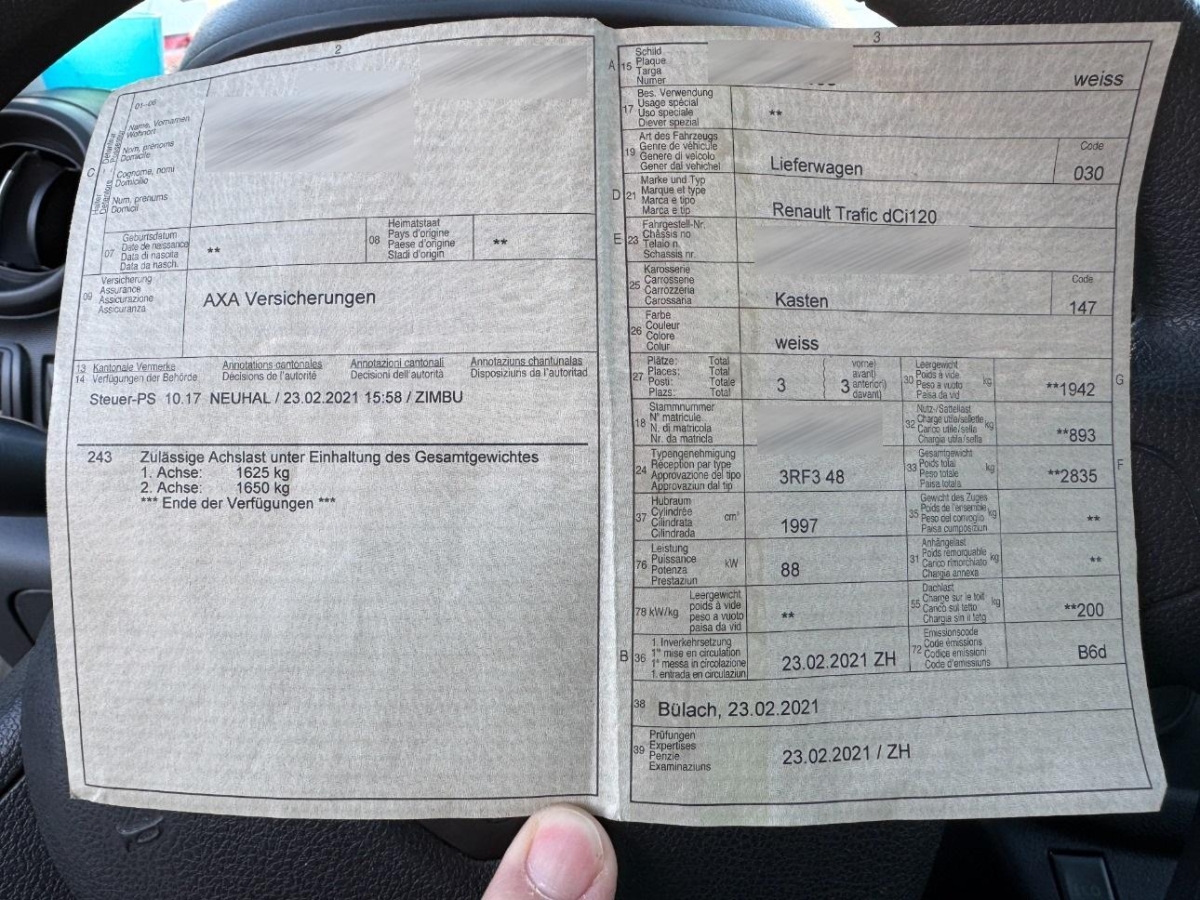 2
C
01–06
Name, Vornamen
Wohnort
Nom, prénoms
Domicile
Cognome, nomi
Domicilio
Num, prenums
Domicil
07
Geburtsdatum
Date de naissance
Data di nascita
Data da nasch.
**
08
Heimatstaat
Pays d'origine
Paese d'origine
Stadi d'origin
**
09
Versicherung
Assurance
Assicurazione
Assicuranza
AXA Versicherungen
13 Kantonale Vermerke Annotations cantonales Annotazioni cantonali Annotaziuns chantunalas
14 Verfügungen der Behörde Décisions de l'autorité Decisioni dell'autorità Disposiziuns da l'autoritad
Steuer-PS 10.17 NEUHAL / 23.02.2021 15:58 / ZIMBU
243 Zulässige Achslast unter Einhaltung des Gesamtgewichtes
1. Achse: 1625 kg
2. Achse: 1650 kg
*** Ende der Verfügungen ***
3
A 15
Schild
Plaque
Targa
Numer
weiss
17
Bes. Verwendung
Usage spécial
Uso speciale
Diever spezial
**
19
Art des Fahrzeugs
Genre de véhicule
Genere di veicolo
Gener dal vehichel
Lieferwagen
Code
030
D 21
Marke und Typ
Marque et type
Marca e tipo
Marca e tip
Renault Trafic dCi120
E 23
Fahrgestell-Nr.
Châssis no
Telaio n.
Schassis nr.
25
Karosserie
Carrosserie
Carrozzeria
Carossaria
Kasten
Code
147
26
Farbe
Couleur
Colore
Colur
weiss
27
Plätze: Total
Places: Total
Posti: Totale
Plazs: Total
3
3
vorne
avant
anteriori
davant
30
Leergewicht
Poids à vide
Peso a vuoto
Paisa da vid
kg
**1942
G
18
Stammnummer
N° matricule
N. di matricola
Nr. da matricla
32
Nutz-/Sattellast
Charge utile/sellette
Carico utile/sella
Chargia utila/sella
kg
**893
24
Typengenehmigung
Réception par type
Approvazione del tipo
Approvaziun dal tip
3RF3 48
33
Gesamtgewicht
Poids total
Peso totale
Paisa totala
kg
**2835
F
37
Hubraum
Cylindrée
Cilindrata
Cilindrada
cm³
1997
35
Gewicht des Zuges
Poids de l'ensemble
Peso del convoglio
Paisa cumposiziun
kg
**
76
Leistung
Puissance
Potenza
Prestaziun
kW
88
31
Anhängelast
Poids remorquable
Carico rimorchiato
Chargia annexa
kg
**
78 kW/kg
Leergewicht
poids à vide
peso a vuoto
paisa da vid
**
55
Dachlast
Charge sur le toit
Carico sul tetto
Chargia sin il tetg
kg
**200
B 36
1. Inverkehrsetzung
1re mise en circulation
1a messa in circolazione
1. entrada en circulaziun
23.02.2021 ZH
72
Emissionscode
Code émissions
Codice emissioni
Code d'emissiuns
B6d
38
Bülach, 23.02.2021
39
Prüfungen
Expertises
Perizie
Examinaziuns
23.02.2021 / ZH